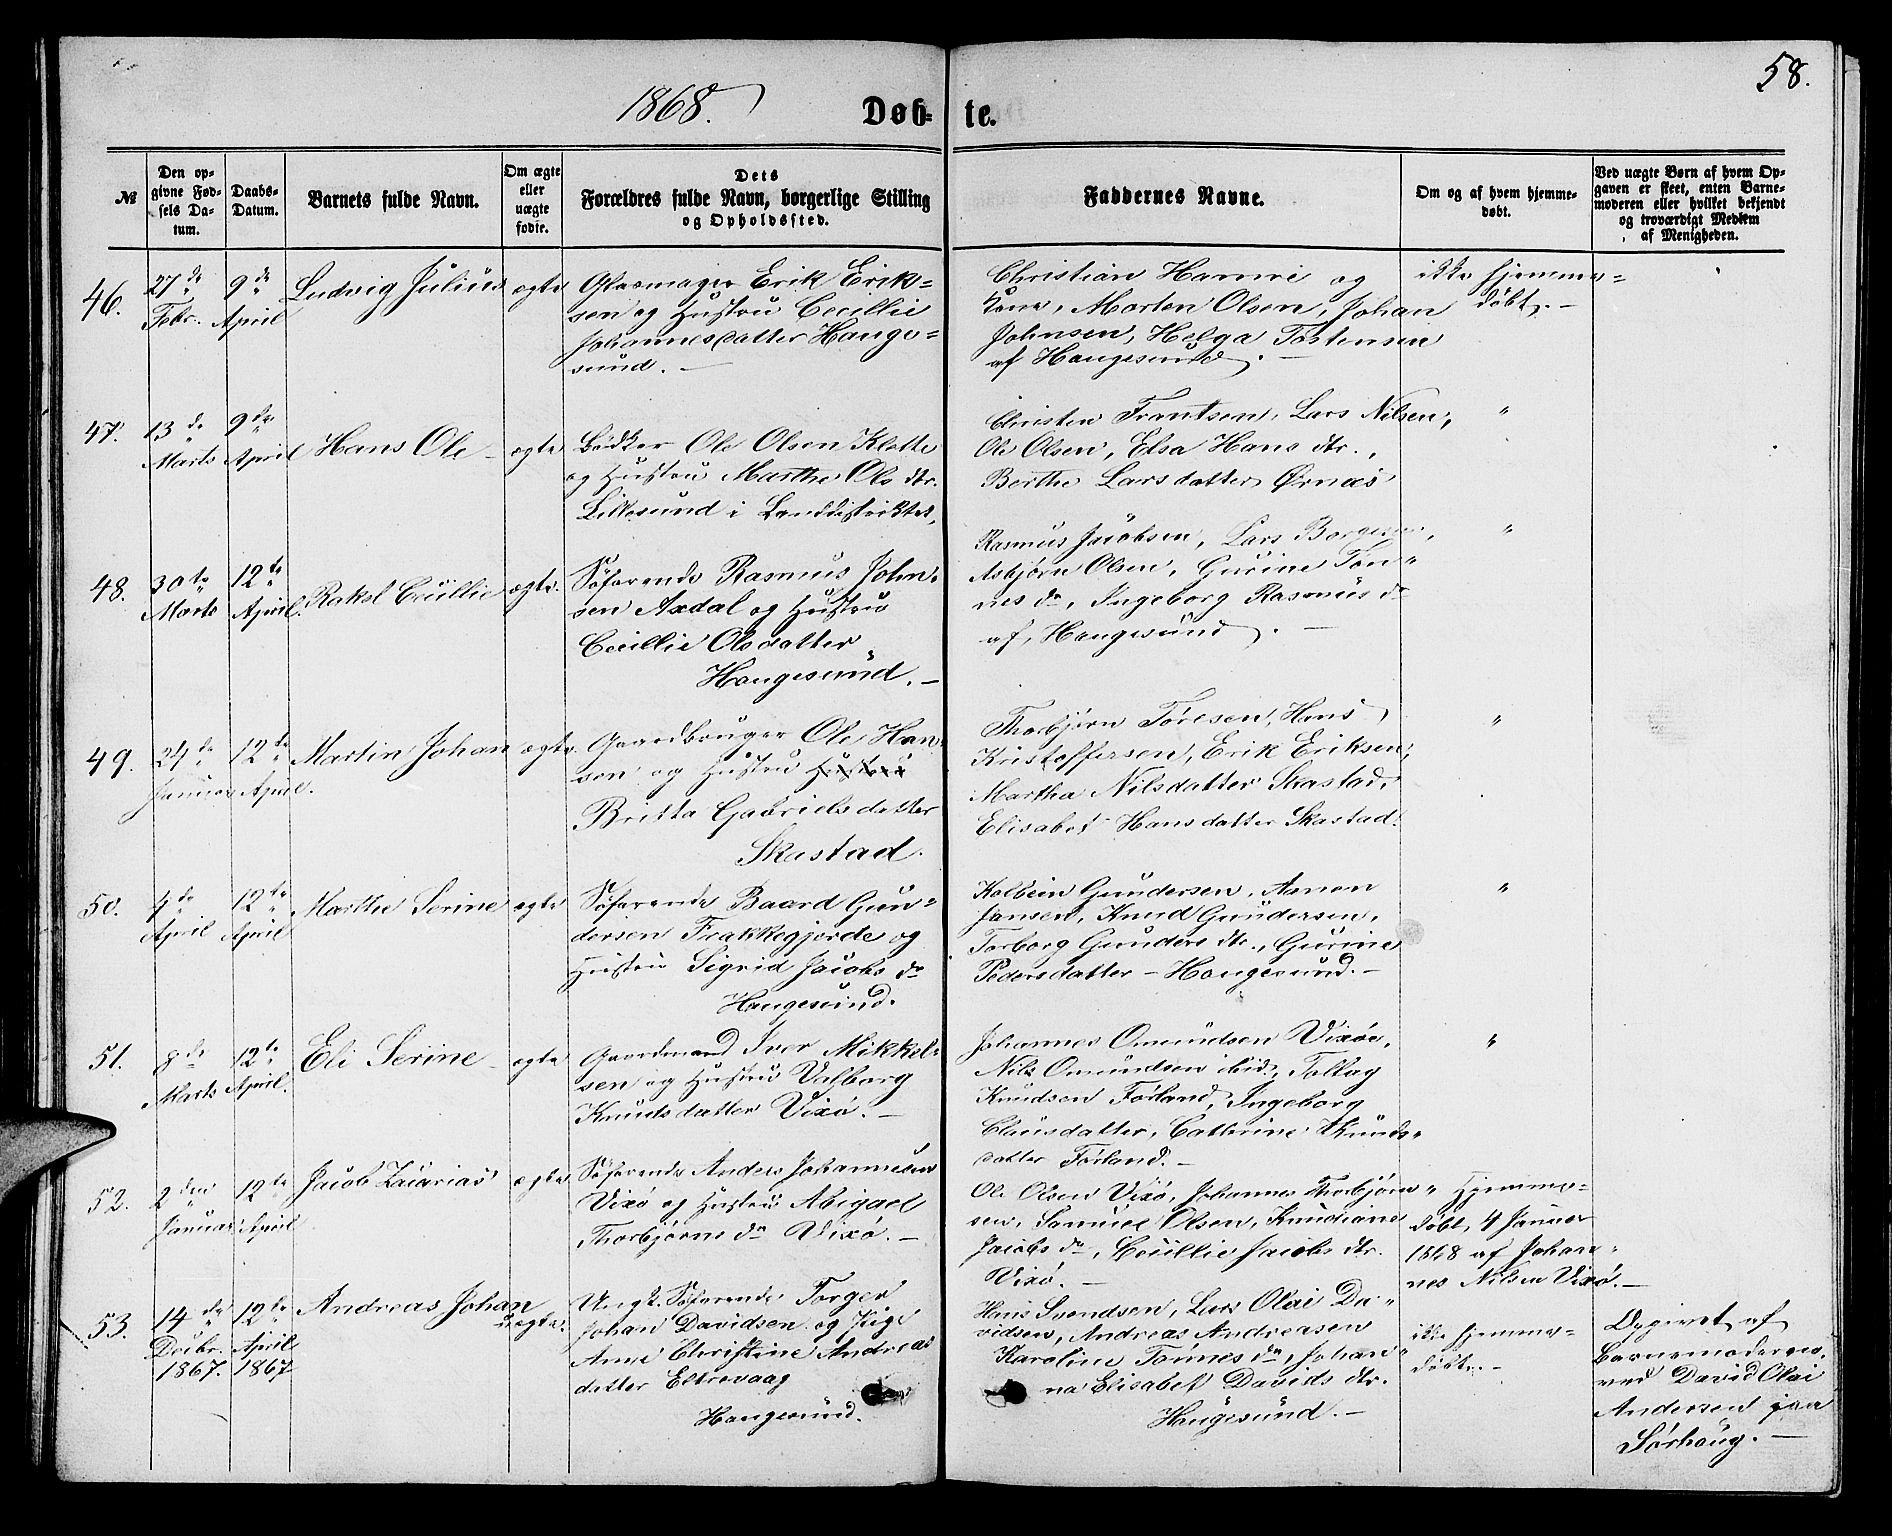 58.
1868.
Døb-te.
№
Den opgivne Fødsels Datum.
Daabs-Datum.
Barnets fulde Navn.
Om ægte eller uægte fødte.
Dets Forældres fulde Navn, borgerlige Stilling og Opholdssted.
Faddernes Navne.
Om og af hvem hjemmedøbt.
Ved uægte Børn af hvem Opgaven er skeet, enten Barnemoderen eller hvilket bekjendt og troværdigt Medlem af Menigheden.
46.
27de Febr.
9de April
Ludvig Julius
ægte
Glasmager Erik Erik-
sen og Hustru Cecillie
Johannesdatter Hauge-
sund. -
Christian Hamre og
Kone, Morten Olsen, Johan
Johnsen, Helga Tostensen
af Haugesund. -
ikke hjemme-
døbt. -
47.
13de Marts
9de April
Hans Ole -
ægte
Bødker Ole Olsen Klette
og Hustru Marthe Ols dtr.
Lillesund i Landdistriktet,
Christen Frantsen, Lars Nilsen,
Ole Olsen, Elsa Hans dtr.,
Berthe Larsdatter Ørnæs
"
48.
30te Marts
12te April.
Rakel Cecillie
ægte.
Søfarende Rasmus John-
sen Axdal og Hustru
Cecillie Olsdatter
Haugesund. -
Rasmus Jacobsen, Lars Borgesen,
Asbjørn Olsen, Gurine Tøn-
nes dr, Ingeborg Rasmus dr
af Haugesund. -
"
49.
24de Januar
12te April.
Martin Johan
ægte.
Gaardbruger Ole Han-
sen og Hustru Hustru
Britta Gabrielsdatter
Skastad.
Thorbjørn Tøresen, Hans
Kristoffersen, Erik Eriksen,
Martha Nilsdatter Skastad,
Elisabet Hansdatter Skastad.
"
50.
4de April
12te April
Marthe Serine
ægte
Søfarende Baard Gun-
dersen Frakkegjerde og
Hustru Sigrid Jacobs dr
Haugesund.
Kolbein Gundersen, Amon
Jansen, Knud Gundersen,
Torborg Gunders dtr., Gurine
Pedersdatter - Haugesund. -
"
51.
8de Marts
12te April.
Eli Serine -
ægte
Gaardmand Iver Mikkel-
sen og Hustru Valborg
Knudsdatter Vixø. -
Johannes Omundsen Vixøe,
Nils Omundsen ibid., Tollag
Knudsen Førland, Ingeborg
Clausdatter, Cathrine Knuds-
datter Førland. -
"
52.
2den Januar
12te April
Jacob Zacarias
ægte
Søfarende Anders Johannesen
Vixø og Hustru Abigael
Thorbjørns dr Vixø. -
Ole Olsen Vixø, Johannes Thorbjørn-
sen, Samuel Olsen, Knudiane
Jacobs dr, Cecillie Jacobs dtr.
Vixø. -
Hjemme-
døbt 4 Januar
1868 af Johan-
nes Nilsen Vixø. -
53.
14de Decbr. 1867.
12te April 1867
Andreas Johan
uægte.
Ungk. Søfarende Torger
Johan Davidsen og Pige
Anne Christine Andreas
datter Eltrevaag
Haugesund.
Hans Svendsen, Lars Olai Da-
vidsen, Andreas Andreasen
Karoline Tønnes dr, Johan-
na Elisabet Davids dtr.
Haugesund. -
ikke hjemme-
døbt. -
Opgivet af
Barnemoderen
ved David Olai
Andersen paa
Sørhaug. -